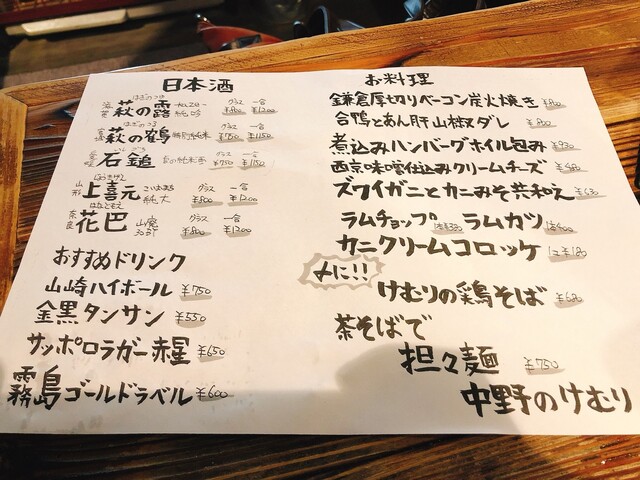 日本酒
はぎのつゆ グラス 一合
滋賀 萩の露 純吟 ¥800 ¥1200
はぎのつる グラス 一合
宮城 萩の鶴 特別純米 ¥750 ¥1150
いしづち グラス 一合
愛媛 石鎚 純米 ¥750 ¥1150
グラス 一合
山形 上喜元 純大 ¥800 ¥1200
はなともえ グラス 一合
奈良 花巴 山廃 ¥800 ¥1200
おすすめドリンク
山崎ハイボール ¥750
金黒タンサン ¥550
サッポロラガー赤星 ¥650
霧島ゴールドラベル ¥600
お料理
鎌倉厚切りベーコン炭火焼き ¥800
合鴨とあん肝 山椒ダレ ¥800
煮込みハンバーグホイル包み ¥930
西京味噌仕込みクリームチーズ ¥480
ズワイガニとカニみそ共和え ¥630
ラムチョップ ラムカツ
カニクリームコロッケ 1コ ¥180
〆に!!
けむりの鶏そば ¥680
茶そばで
担々麺 ¥750
中野のけむり